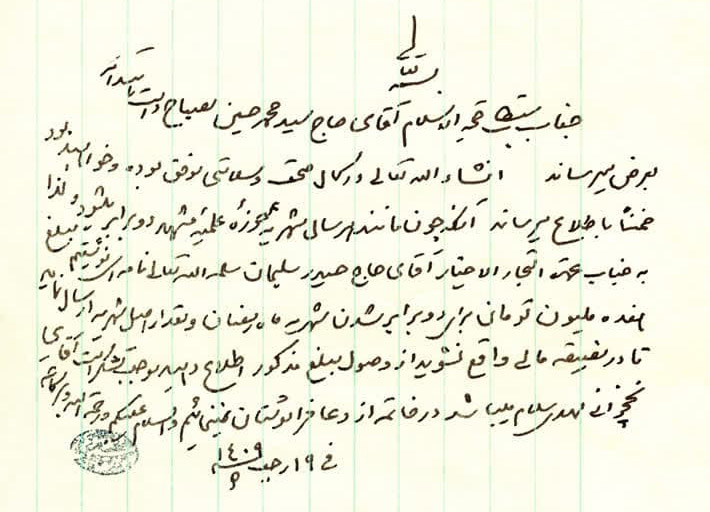 بسمه تعالی
جناب مستطاب حجة الاسلام آقای حاج سید محمد حسین مصباح دامت تاییداته
بعرض میرساند انشاء الله تعالی در کمال صحت و سلامتی موفق بوده و خواهید بود
ضمناً باطلاع میرساند آنکه چون مانند هر سال شهریه حوزه علمیه مشهد دو برابر میشود ولذا
به جناب عمدة التجار الاخیار آقای حاج حیدر سلیمان سلمه الله تعالی نامه ای نوشتیم مبلغ
هفده ملیون تومان برای دو برابر شدن شهریه ماه رمضان و مقدار اصل شهریه ارسال نمایید
تا در مضیقه مالی واقع نشوید از وصول مبلغ مذکور اطلاع دهید موجب تشکر است آقای
نخجوانی مهدی سلام میباشد در خاتمه از دعا فراموشتان نمینمائیم والسلام علیکم ورحمة الله وبرکاته
فی ۱۹ رجب ۱۴۰۹